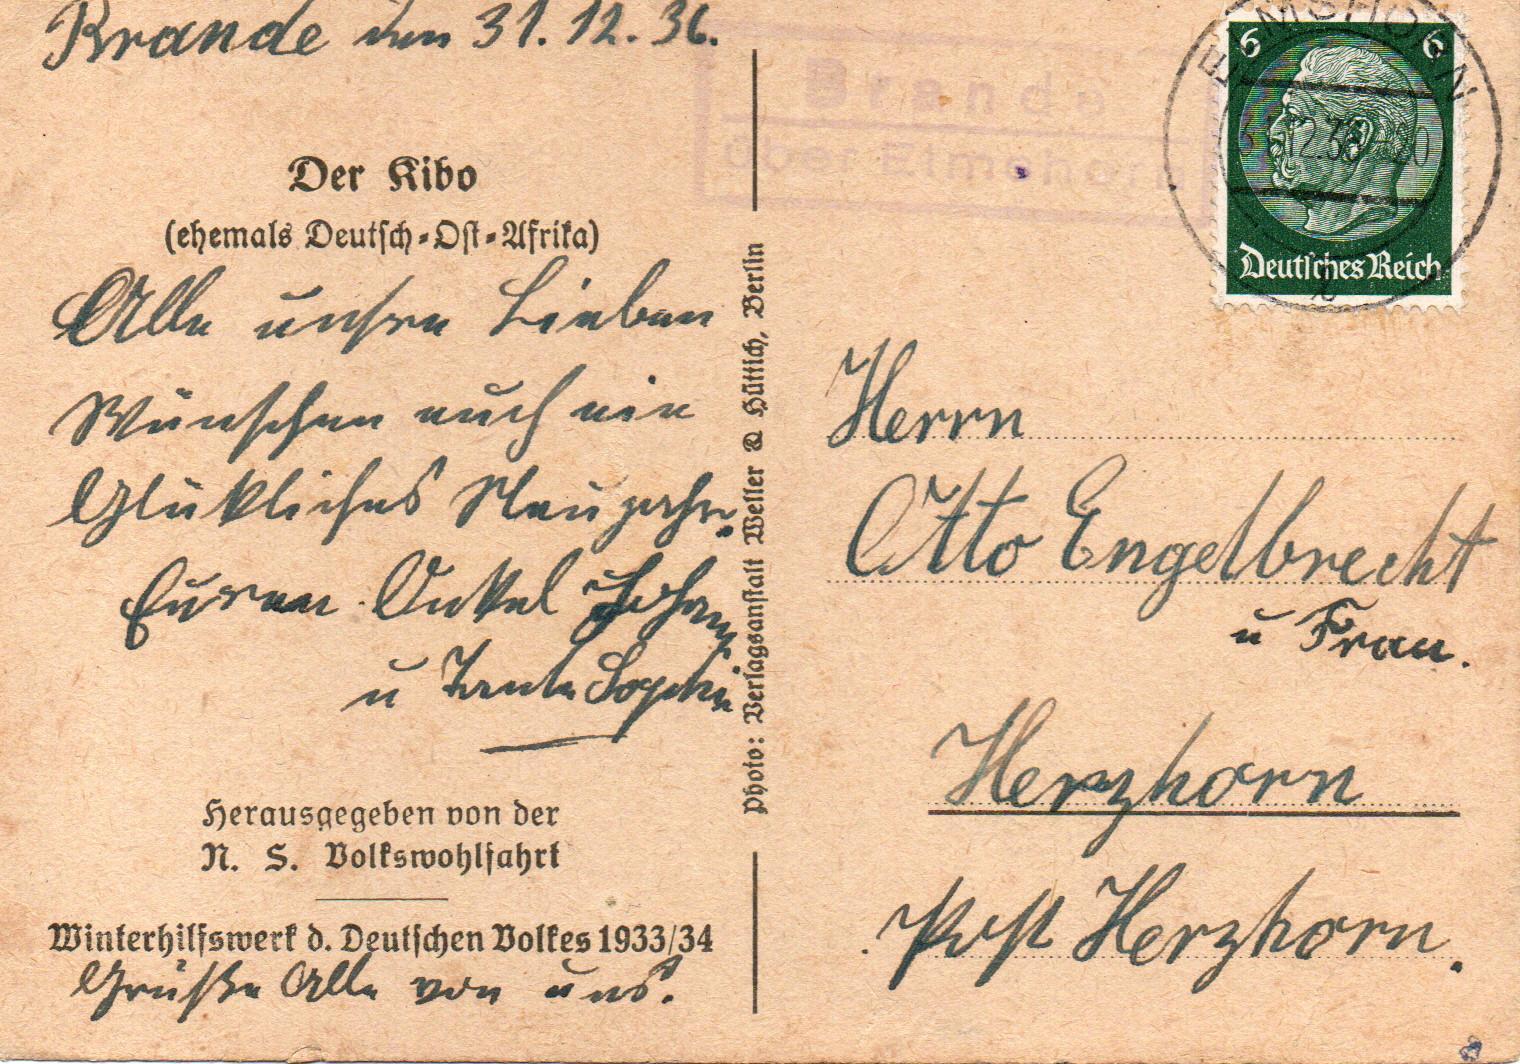 Brande den 31.12.36.
Der Kibo
(ehemals Deutsch-Ost-Afrika)
Alle unsre Lieben
Wünschen auch ein
Glükliches Neujahr.
Euren Onkel Johan
u Tante Sophie
Herausgegeben von der
N. S. Volkswohlfahrt
Winterhilfswerk d. Deutschen Volkes 1933/34
Grüße Alle von uns.
Photo: Verlagsanstalt Weller & Hüttich, Berlin
Brande
über Elmshorn
ELMSHORN
12.36
6 6
Deutsches Reich
Herrn
Otto Engelbrecht
u Frau.
Herzhorn
Post Herzhorn.